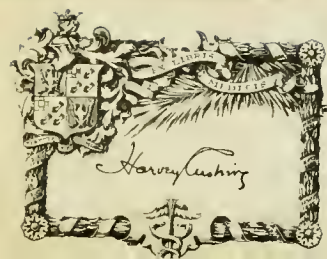 EX LIBRIS
MEDICIS
Harvey Cushing